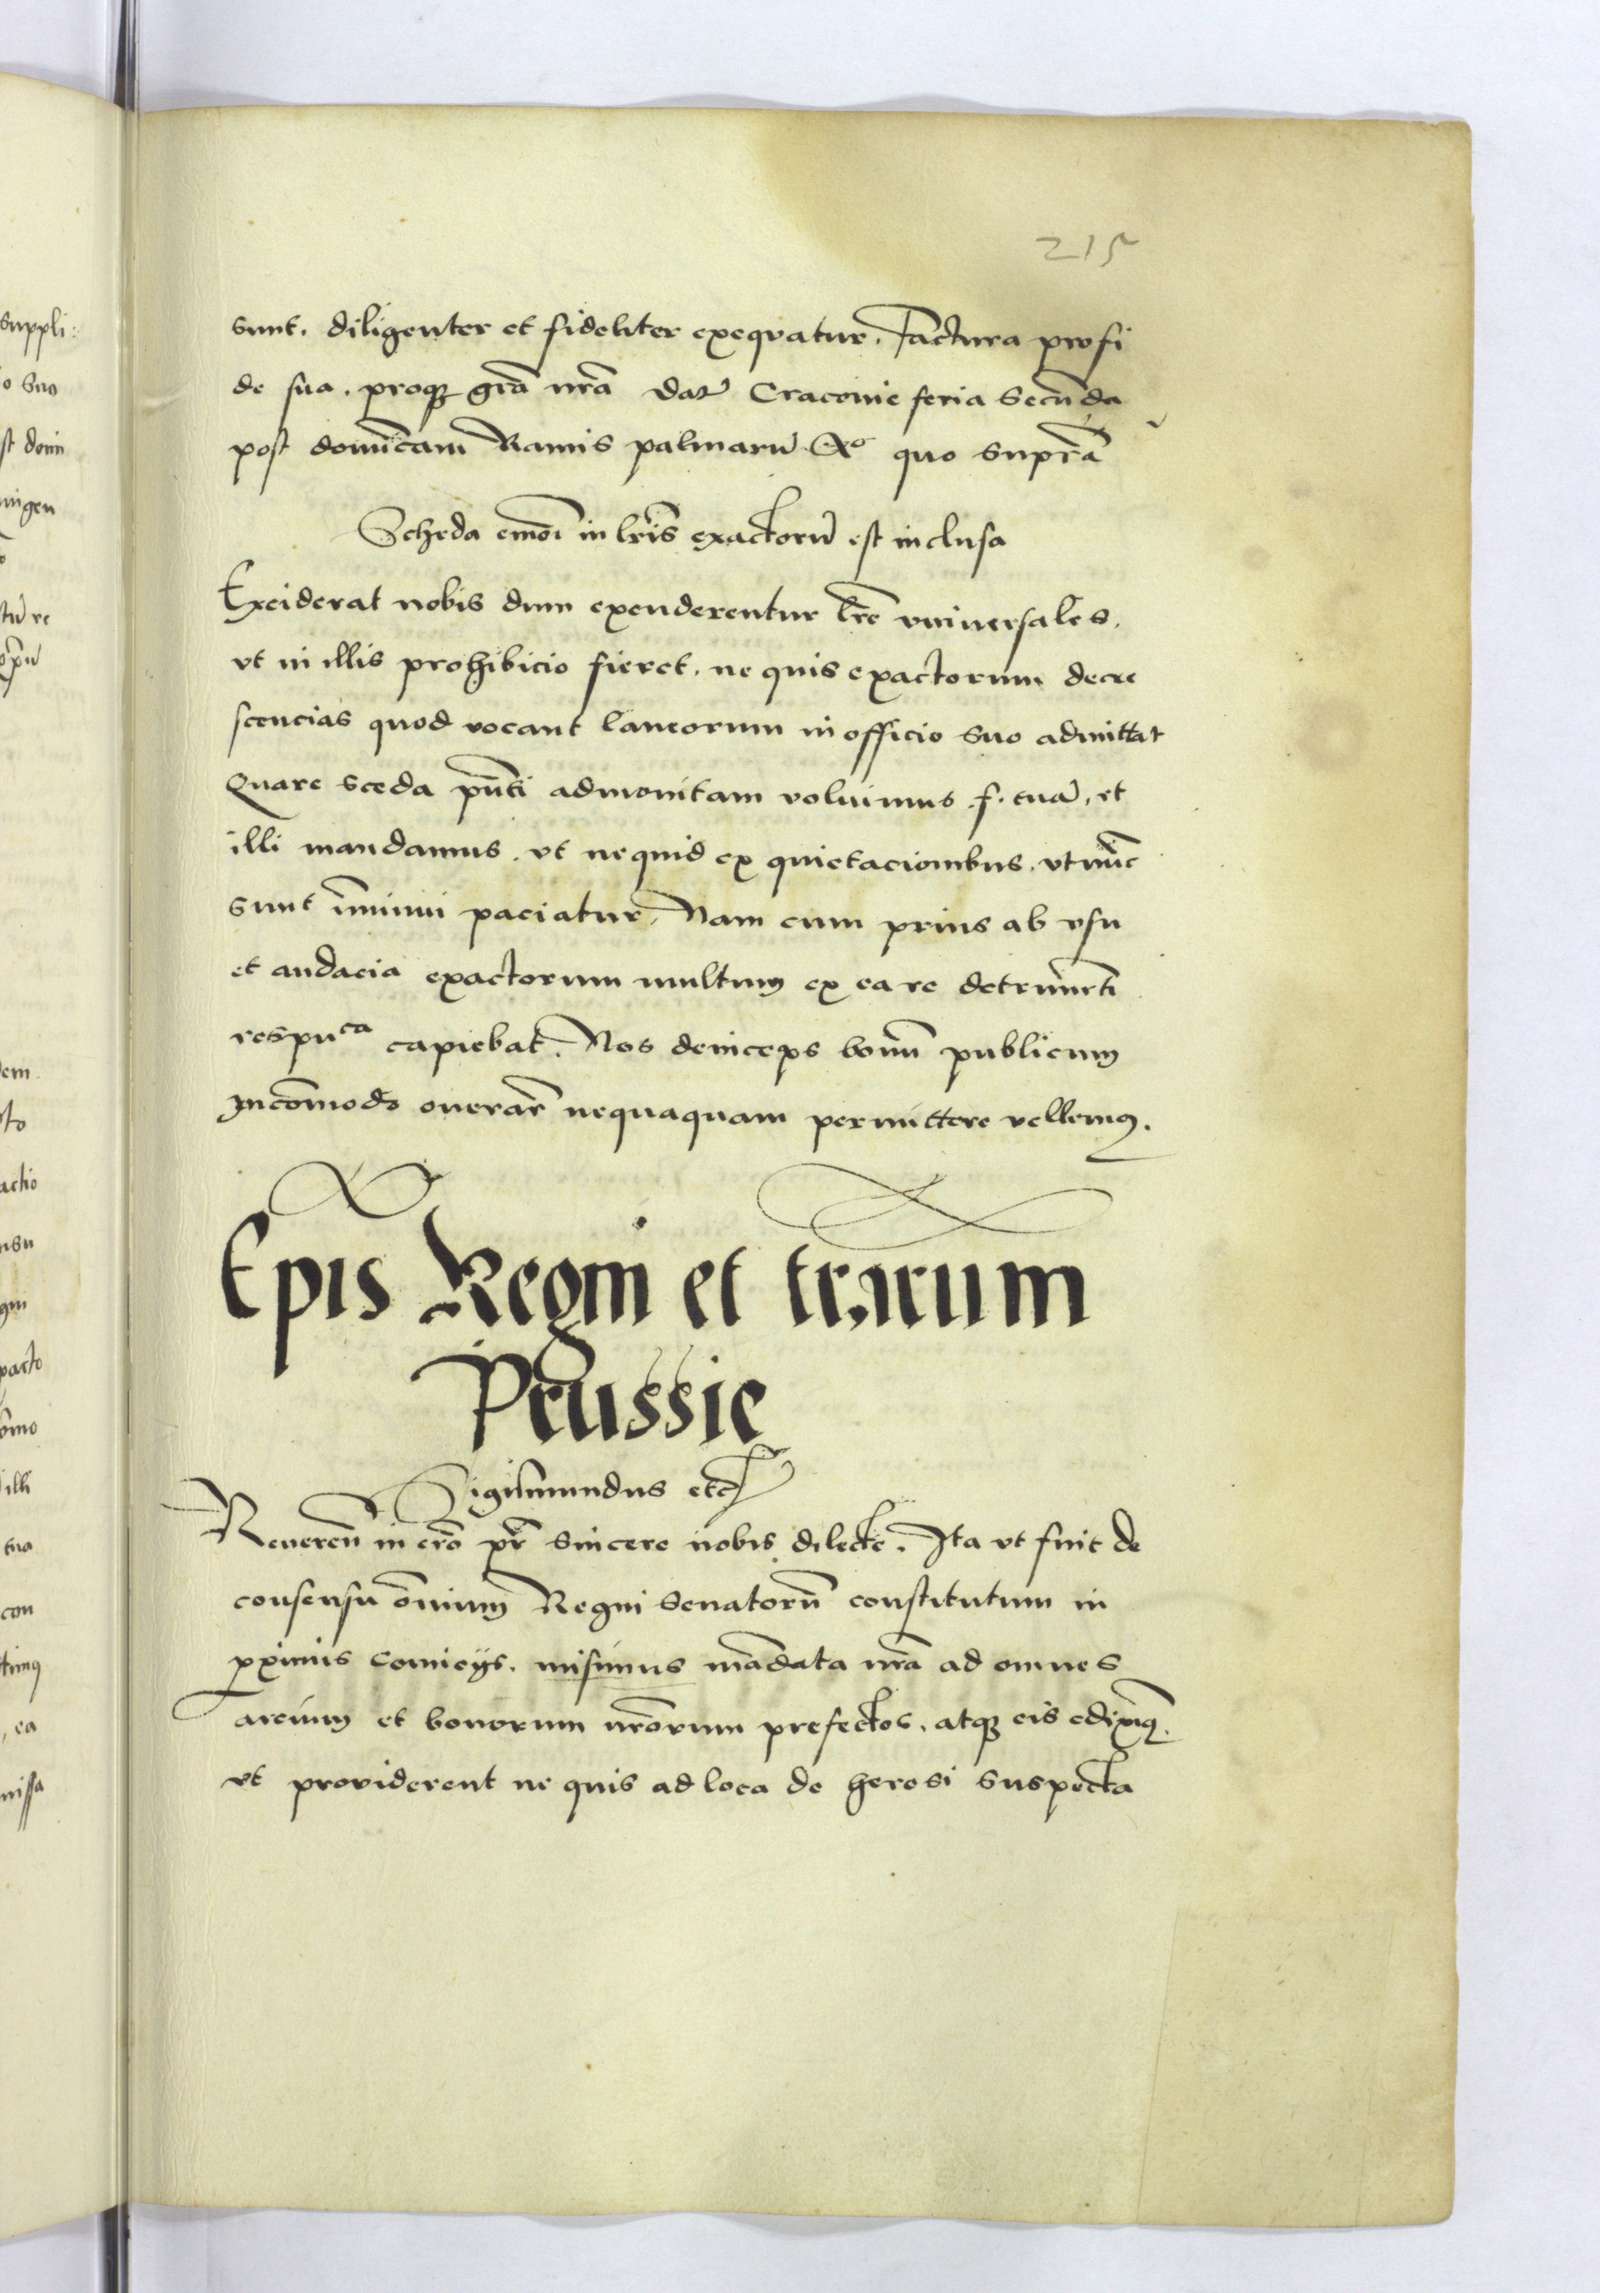 215
sunt. diligenter et fideliter exequatur. Factura pro fi
de sua. proq₃ grã nrã Dat Cracovie feria Secũda
post domĩcam Ramis palmarũ Aº quo supra
Scheda emoi in lris exactorũ est inclusa
Exciderat nobis dum expenderentur lre vniuersales.
vt in illis prohibicio fieret. ne quis exactorum decre
scencias quod vocant laneorum in officio suo admittat
Quare sceda pñti admonitam voluimus .f. tuã, et
illi mandamus. vt nequid ex quietacionibus. vt nũc
sunt ĩminui paciatur, Nam cum prius ab vsu
et audacia exactorum multum ex ea re detrimẽti
respuᶜᵃ capiebat. Nos deinceps bonũ publicum
incõmodo onerari nequaquam permittere vellemꝰ.
Epis Regni et trarum
Prussie
Sigismundus etc
Reueren in cro pr sincere nobis dilecte. Ita vt fuit de
consensu õnium Regni Senatorũ constitutum in
pximis comicijs. misimus mãdata nrã ad omnes
arcium et bonorum nrõrum prefectos, atq₃ eis ediximꝰ.
vt prouiderent ne quis ad loca de heresi suspecta